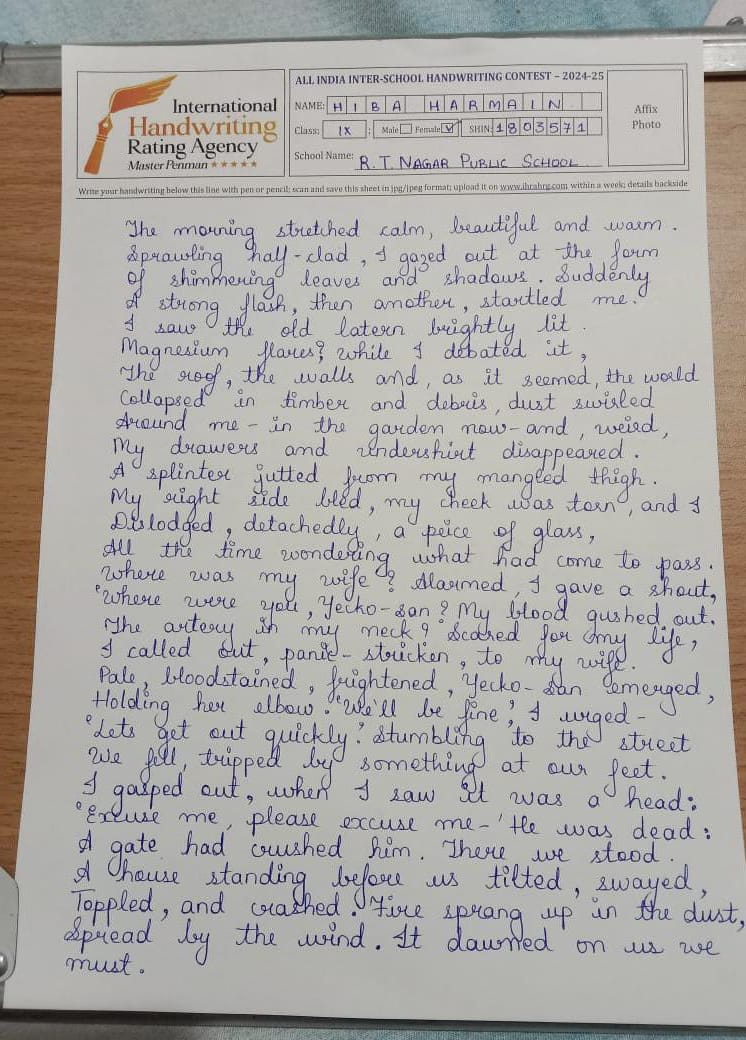 International
Handwriting
Rating Agency
Master Penman ★★★★★
ALL INDIA INTER-SCHOOL HANDWRITING CONTEST – 2024-25
NAME: HIBA HARMAIN
Class: IX : Male Female SHIN: 1803571
School Name: R.T. NAGAR PUBLIC SCHOOL
Affix
Photo
Write your handwriting below this line with pen or pencil; scan and save this sheet in jpg/jpeg format; upload it on www.ihrahrg.com within a week; details backside
The morning stretched calm, beautiful and warm.
Sprawling half-clad, I gazed out at the form
Of shimmering leaves and shadows. Suddenly
A strong flash, then another, startled me.
I saw the old latern brightly lit.
Magnesium flares? while I debated it,
The roof, the walls and, as it seemed, the world
Collapsed in timber and debris, dust swirled
Around me – in the garden now – and, weird,
My drawers and undershirt disappeared.
A splinter jutted from my mangled thigh.
My right side bled, my cheek was torn, and I
Dislodged, detachedly, a peice of glass,
All the time wondering what had come to pass.
Where was my wife? Alarmed, I gave a shout,
'Where were you, Yecko-san?' My blood gushed out.
The artery in my neck? Scared for my life,
I called out, panic-stricken, to my wife.
Pale, bloodstained, frightened, Yecko-san emerged,
Holding her elbow. 'We'll be fine', I urged –
'Lets get out quickly'. Stumbling to the street
We fell, tripped by something at our feet.
I gasped out, when I saw it was a head:
'Excuse me, please excuse me –' He was dead:
A gate had crushed him. There we stood.
A house standing before us tilted, swayed,
Toppled, and crashed. Fire sprang up in the dust,
Spread by the wind. It dawned on us we
must.